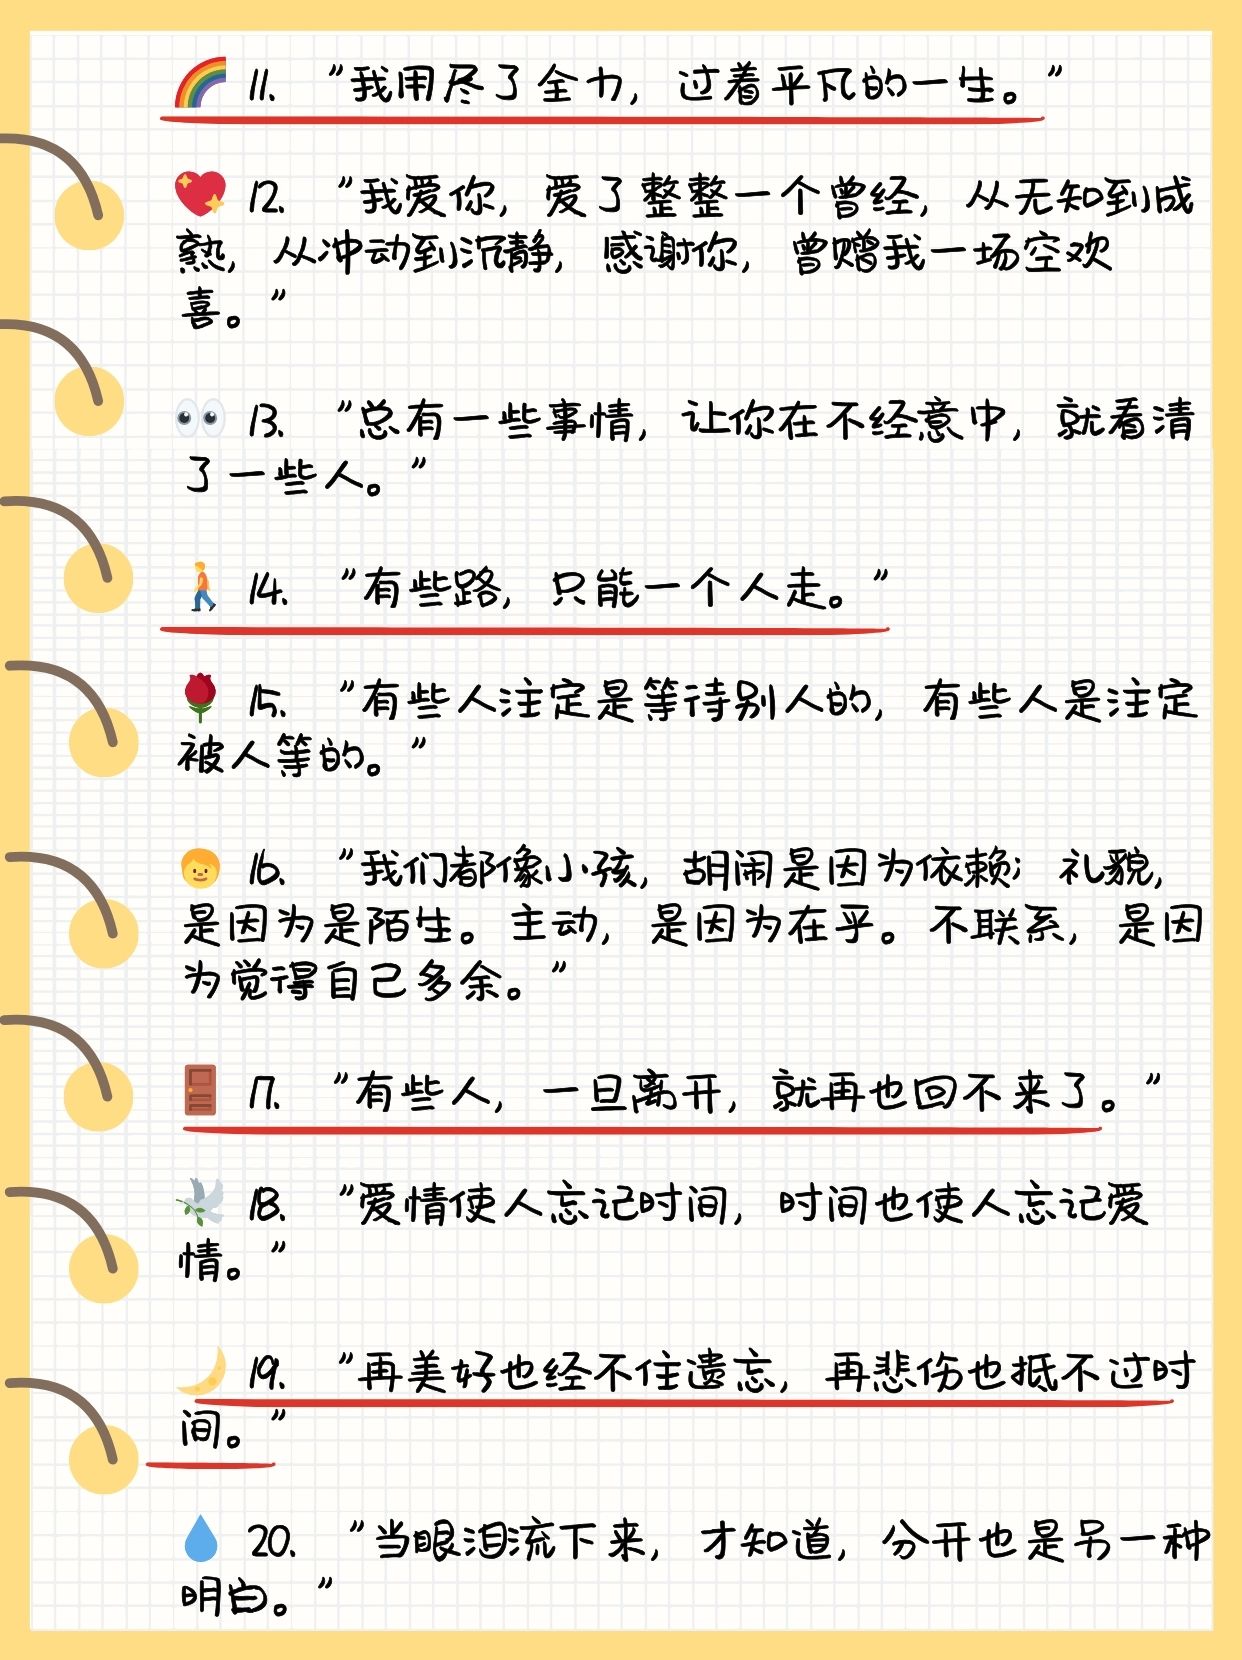 🌈 11. "我用尽了全力，过着平凡的一生。"
💖 12. "我爱你，爱了整整一个曾经，从无知到成
熟，从冲动到沉静，感谢你，曾赠我一场空欢
喜。"
👀 13. "总有一些事情，让你在不经意中，就看清
了一些人。"
🚶 14. "有些路，只能一个人走。"
🌹 15. "有些人注定是等待别人的，有些人是注定
被人等的。"
👦 16. "我们都像小孩，胡闹是因为依赖；礼貌，
是因为是陌生。主动，是因为在乎。不联系，是因
为觉得自己多余。"
🚪 17. "有些人，一旦离开，就再也回不来了。"
🕊 18. "爱情使人忘记时间，时间也使人忘记爱
情。"
🌙 19. "再美好也经不住遗忘，再悲伤也抵不过时
间。"
💧 20. "当眼泪流下来，才知道，分开也是另一种
明白。"